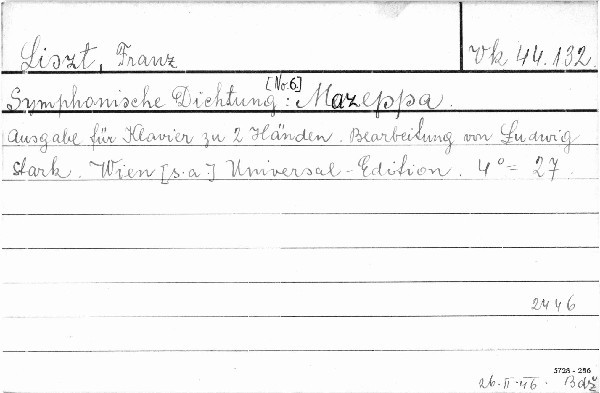 Liszt, Franz
Vk 44.132.
Symphonische Dichtung [No:6.]: Mazeppa.
Ausgabe für Klavier zu 2 Händen. Bearbeitung von Ludwig
Stark. Wien [s.a.] Universal-Edition. 4°= 27.
2446
5728 - 286
26.II.46. Bdž